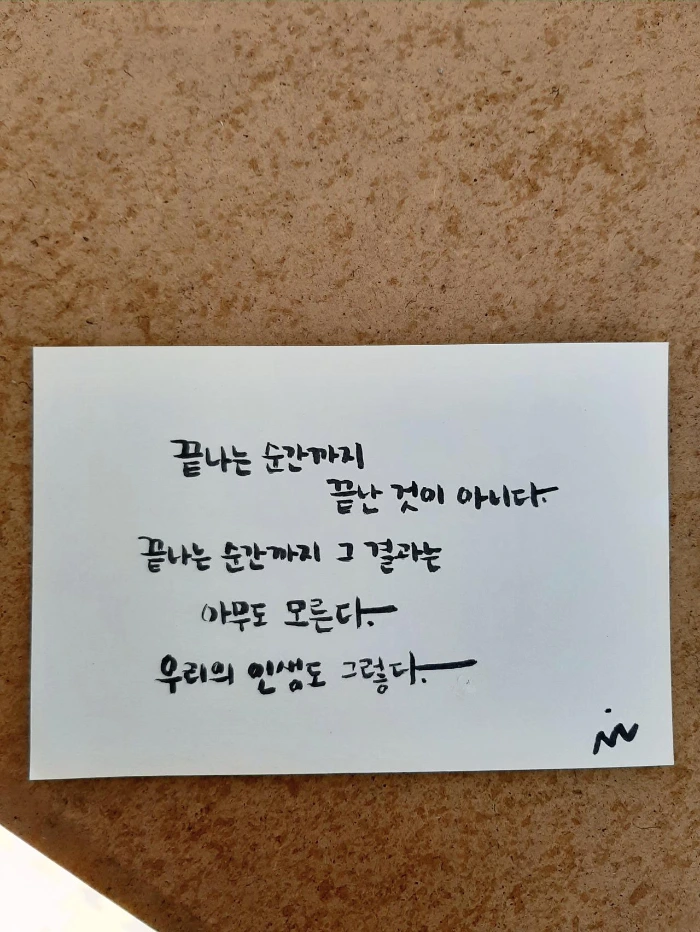 끝나는 순간까지
끝난 것이 아니다.
끝나는 순간까지 그 결과는
아무도 모른다.
우리의 인생도 그렇다.